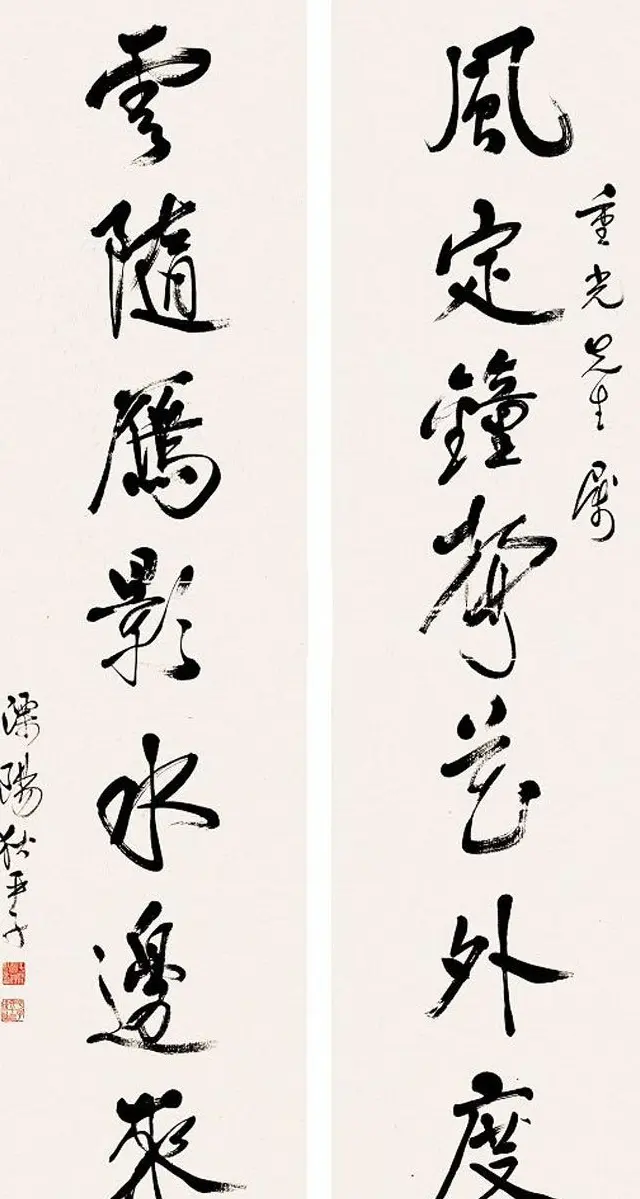 重光先生属
風定鐘聲花外度
雲隨雁影水邊來
溧陽狄平子